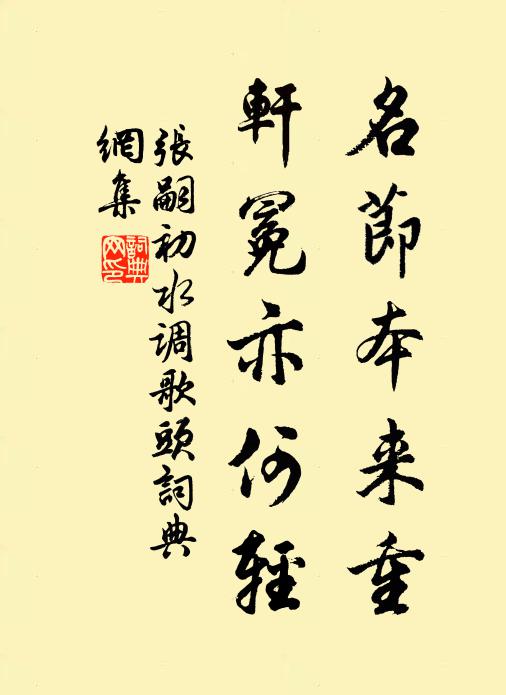 名節本来重
軒冕亦何輕
張嗣初水调歌頭詞典
網集
詞典網印